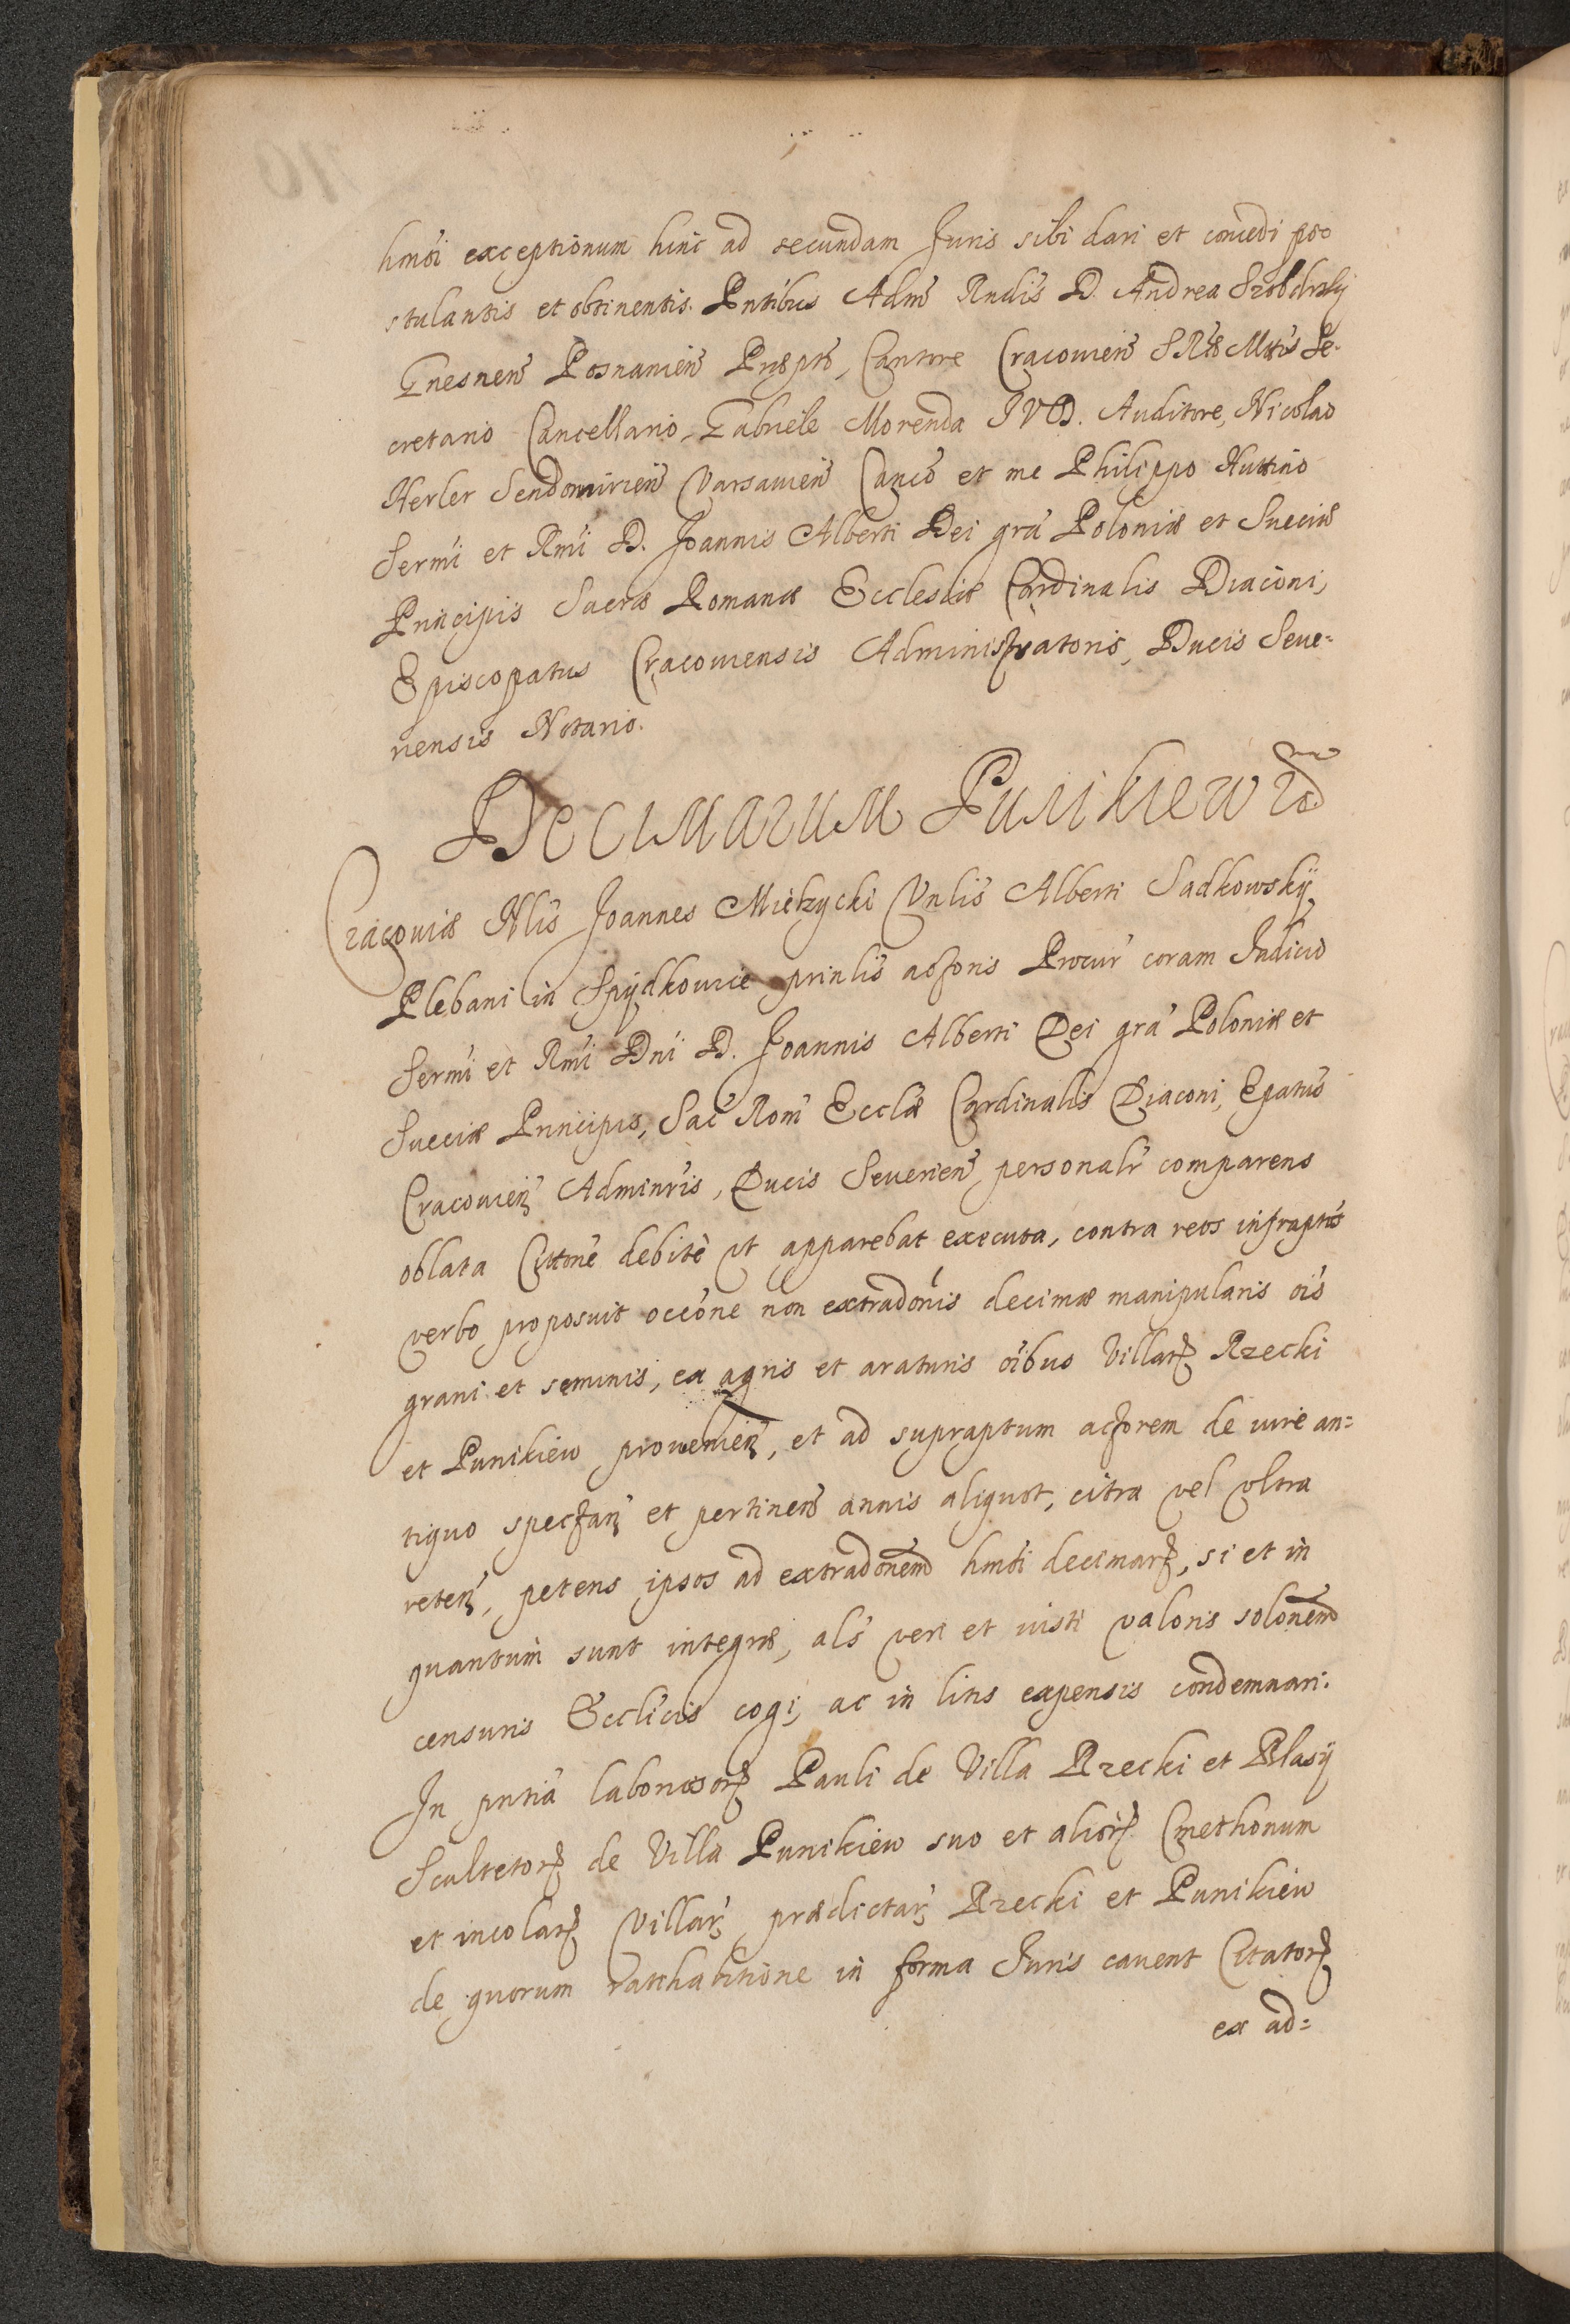 hmōi exceptionum hinc ad secundam Juris sibi dari et concedi po-
stulantis et obtinentis. Pntibus Adm̄ Rndis D. Andrea Szołdrsky
Gnesneñ Posnanieñ Præpto, Cantore Cracovieñ SRæ Mttis Se-
cretario Cancellario, Gabriele Morenda JVD. Auditore, Nicolao
Herler Sendomirieñ Varsavieñ Canco et me Philippo Huttino
Sermi et Rmi D. Joannis Alberti Dei gra Poloniæ et Sueciæ
Principis Sacræ Romanæ Ecclesiæ Cardinalis Diaconi,
Episcopatus Cracouiensis Administratoris, Ducis Seue=
riensis Notario.
Decimarum Punikiew
Cracouiæ Nlis Joannes Mietzycki Vnlis Alberti Sadkowskÿ
Plebani in Spÿdkowice prinlis actoris Procur coram Judicio
Sermi et Rmi Dni D. Joannis Alberti Dei gra Poloniæ et
Sueciæ Principis, Sac Rom Ecclæ Cardinalis Diaconi, Epatus
Cracouieñ Adminris, Ducis Seuerieñ personalr comparens
oblata Cittone debitè ut apparebat executa, contra reos infraptos
verbo proposuit occone non extradonis decimæ manipularis ois
grani et seminis, ex agris et araturis oibus Villarꝝ Rzecki
et Punikiew prouenieñ, et ad supraptum actorem de iure an=
tiquo spectañ et pertineñ annis aliquot, citra vel vltra
reteñ, petens ipsos ad extradonem hmōi decimarꝝ, si et in
quantum sunt integræ, als veri et iusti valoris solonem
censuris Ecclicis cogi, ac in litis expensis condemnari.
In pntia laboriosorꝝ Pauli de Villa Rzecki et Blasÿ
Scultetorꝝ de Villa Punikiew suo et aliorꝝ Cmethonum
et incolarꝝ Villarꝝ prædictarꝝ Rzecki et Punikiew
de quorum ratihabitione in forma Juris cauent Citatorꝝ
ex ad=